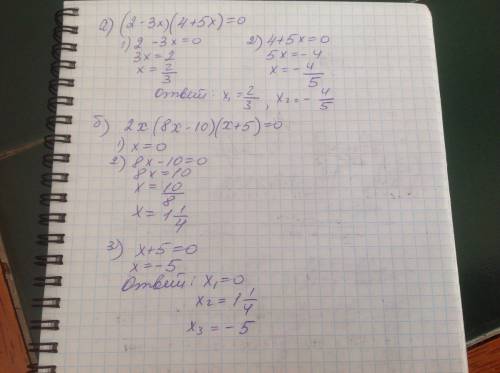 а) (2-3x)(4+5x)=0
1) 2-3x=0
3x=2
x=2/3
2) 4+5x=0
5x=-4
x=-4/5
Ответ: x₁=2/3, x₂=-4/5
б) 2x(8x-10)(x+5)=0
1) x=0
2) 8x-10=0
8x=10
x=10/8
x=1 1/4
3) x+5=0
x=-5
Ответ: x₁=0
x₂=1 1/4
x₃=-5